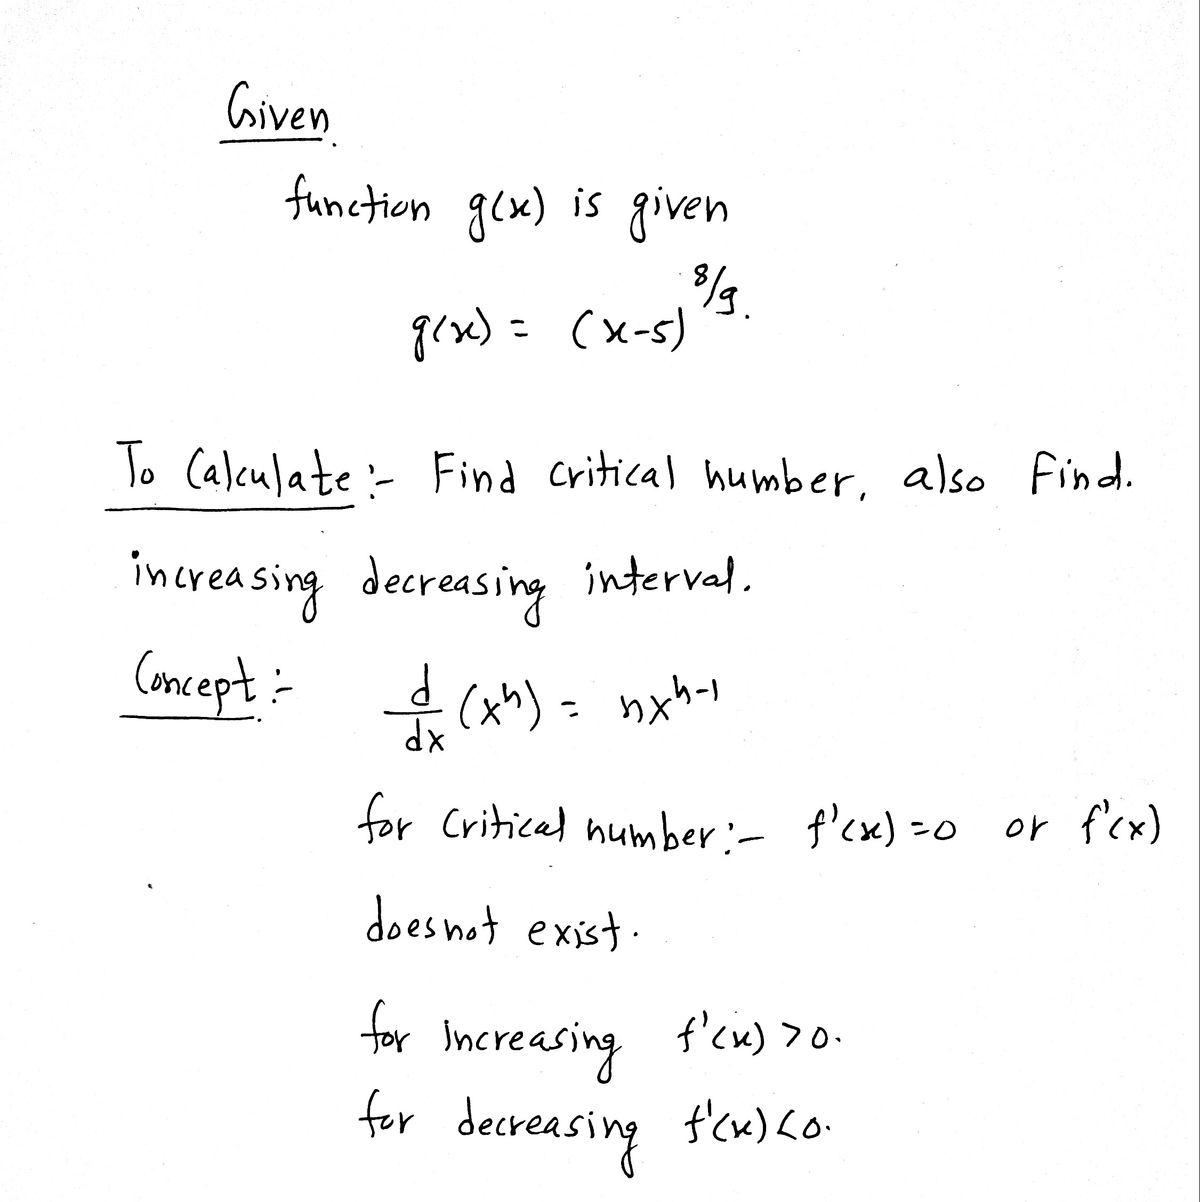 Given
function g(x) is given
g(x) = (x-5)^8/9.
To Calculate:- Find critical number, also find.
increasing decreasing interval.
Concept:- d/dx (x^n) = nx^n-1
for critical number:- f'(x) =0 or f'(x)
does not exist.
for increasing f'(x) >0.
for decreasing f'(x) <0.